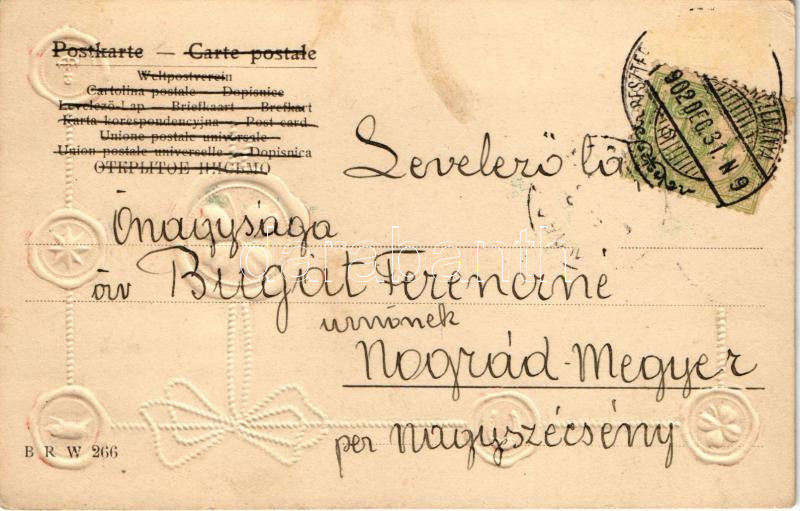 Postkarte — Carte postale
Weltpostverein
Cartolina postale — Dopisnice
Levelező-Lap — Briefkaart — Brefkort
Karta korespondencyjna — Post card
Unione postale universale
Union postale universelle — Dopisnica
ОТКРЫТОЕ ПИСЬМО
Levelező
902 DEC. 31. N 9
Őnagysága
darabanth
öv Bugát Ferencné
urnőnek
Nográd-Megyer
per nagyszécsény
B R W 266